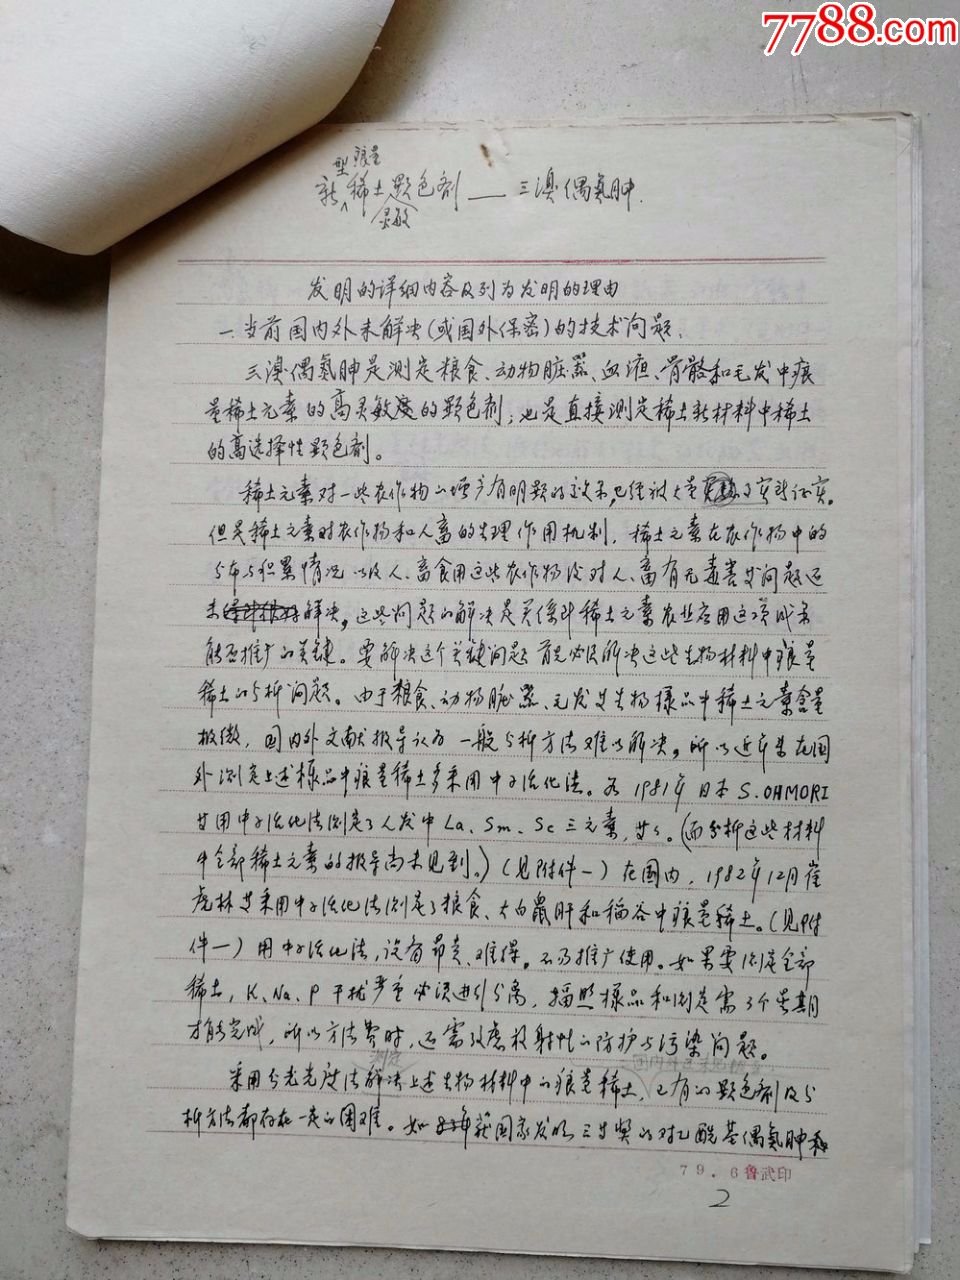 7788.com
型 痕量
新稀土显色剂——三溴偶氮胂.
灵敏
发明的详细内容及列为发明的理由
一.当前国内外未解决(或国外保密)的技术问题.
三溴偶氮胂是测定粮食、动物脏器、血液、骨骼和毛发中痕
量稀土元素的高灵敏度的显色剂;也是直接测定稀土新材料中稀土
的高选择性显色剂。
稀土元素对一些农作物的增产有明显的效果,已经被大量 实践证实。
但是稀土元素对农作物和人畜的生理作用机制,稀土元素在农作物中的
分布与积累情况以及人、畜食用这些农作物后对人、畜有无毒害等问题还
未 解决。这些问题的解决是关係到稀土元素农业应用这项成果
能否推广的关键。要解决这个关键问题首先必须解决这些生物材料中痕量
稀土的分析问题。由于粮食、动物脏器、毛发等生物樣品中稀土元素含量
极微,国内外文献报导认为一般分析方法难以解决。所以近年来在国
外测定上述樣品中痕量稀土多采用中子活化法。如1981年日本S.OHMORI
等用中子活化法测定了人发中La、Sm、Sc三元素,等。(而分析这些材料
中全部稀土元素的报导尚未见到。)(见附件一)在国内,1982年12月崔
虎林等采用中子活化法测定了粮食、大白鼠肝和稻谷中痕量稀土。(见附
件一)用中子活化法,设备昂贵、难得。不易推广使用。如果要测定全部
稀土,K、Na、P干扰严重必须进行分离,辐照樣品和测定需3个星期
才能完成,所以方法费时,还需考虑放射性的防护与污染问题。
测定 国内外
采用分光光度法解决上述生物材料中的痕量稀土,已有的显色剂及分
析方法都存在一定的困难。如 获国家发明三等奖的对乙酰基偶氮胂和
79.6鲁武印
2